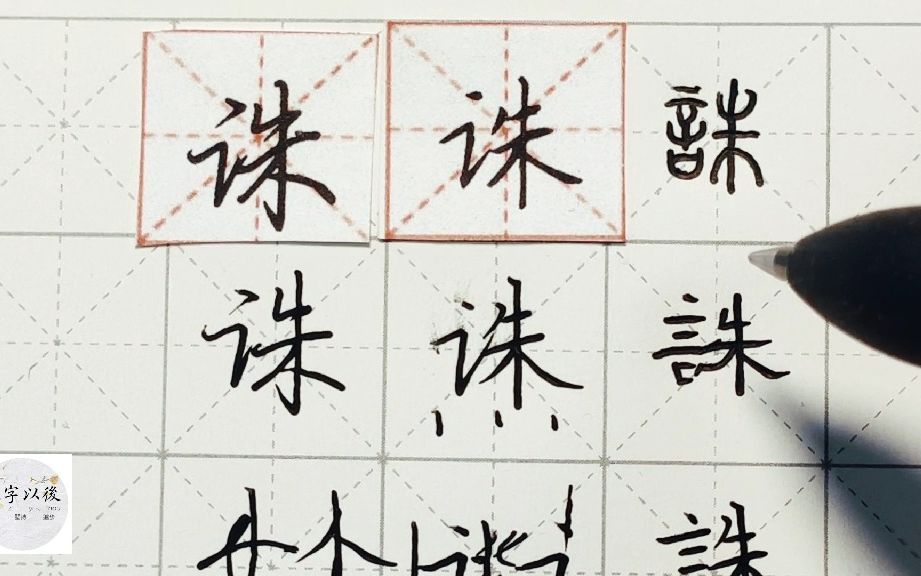 诛 诛 誅
诛 诛 誅
誅
字以後